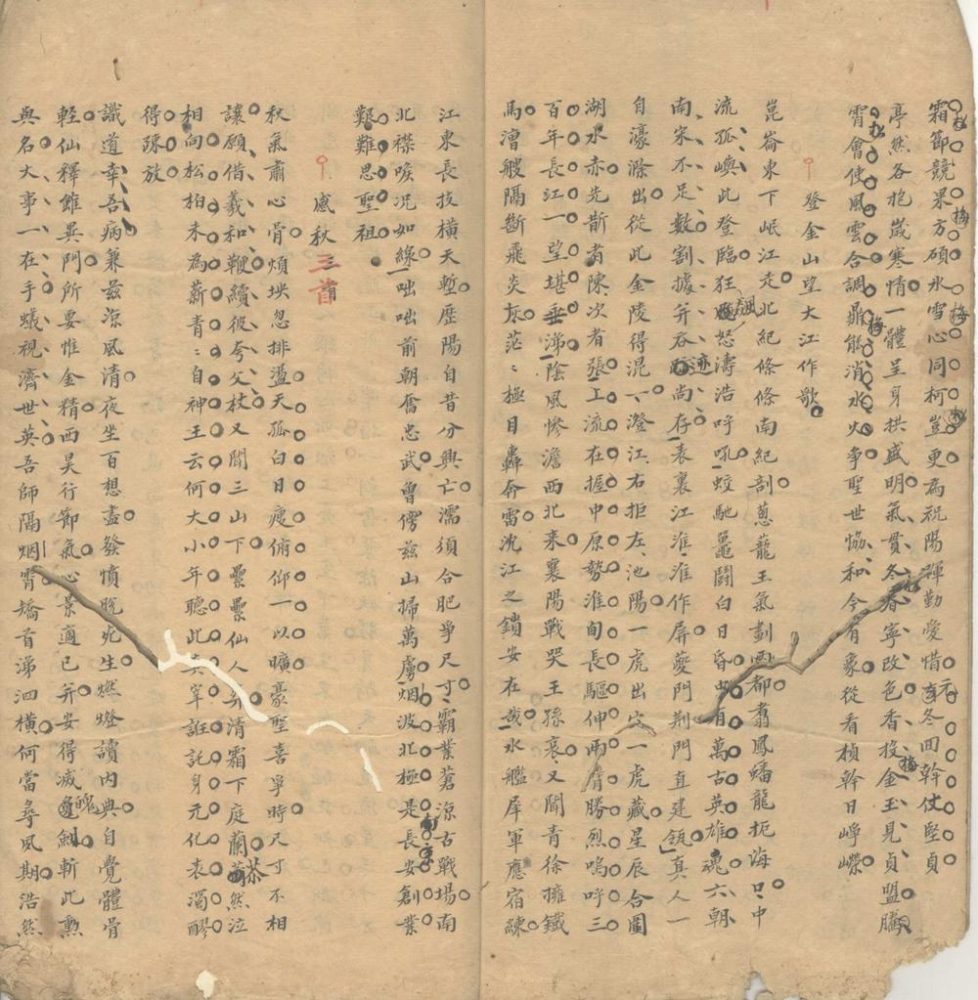 霜節競果方碩氷雪心同柯豈更為祝陽輝勤愛惜冬回幹仗堅貞
亭然各抱歲寒情一體呈身拱盛明氣貫冬春寧改色香投金玉見貞盟騰
霄會使風雲合調鼎能消水火爭聖世協和今有象從看楨幹日崢嶸
登金山望大江作歌
崑崙東下岷江走北紀條條南紀剖蔥蘢王氣劃兩都翥鳳蟠龍扼海口中
流孤嶼此登臨狂颷怒濤浩呼吼蛟馳鼉鬪白日昏中有萬古英雄魂六朝
南宋不足數割據并吞迹尚存表裏江淮淮作屏夔門荆門直建瓴真人一
自濠滁出從此金陵得混一澄江右拒左池陽一虎出穴一虎藏星辰合圖
湖水赤先斮者陳次者張上流在握中原勢淮甸長驅伸兩臂勝烈嗚呼三
百年長江一望堪垂涕陰風慘澹西北来襄陽戰哭王孫哀又聞青徐擁鐵
馬漕艘隔斷飛炎灰茫茫極目轟奔雷沈江之鎖安在哉水艦犀軍應宿練
江東長技橫天塹歷陽自昔分興亡濡須合肥爭尺寸霸業蒼涼古戰場南
北襟喉况如線咄咄前朝奮忠武曾僇兹山掃萬虜烟波北極是長安創業
艱難思聖祖
感秋三首
秋氣肅心骨煩埃忽排盪天孤白日瘦俯仰一以曠豪堅喜爭時尺寸不相
讓願借羲和鞭續彼夸父杖又聞三山下纍纍仙人葬清霜下庭蘭蕭然泣
相向松柏未為薪青青自神王云何大小年聽此真宰誑託身元化表濁醪
得踈放
識道幸吾病兼兹涼風清夜坐百想盡發憤脫死生燃燈讀内典自覺體骨
輕仙釋雖異門所要惟金精西昊行節氣心景適已并安得滅魄劒斬此勲
與名大事一在手蟻視濟世英吾師隔烟霄矯首涕泗橫何當尋風期浩然